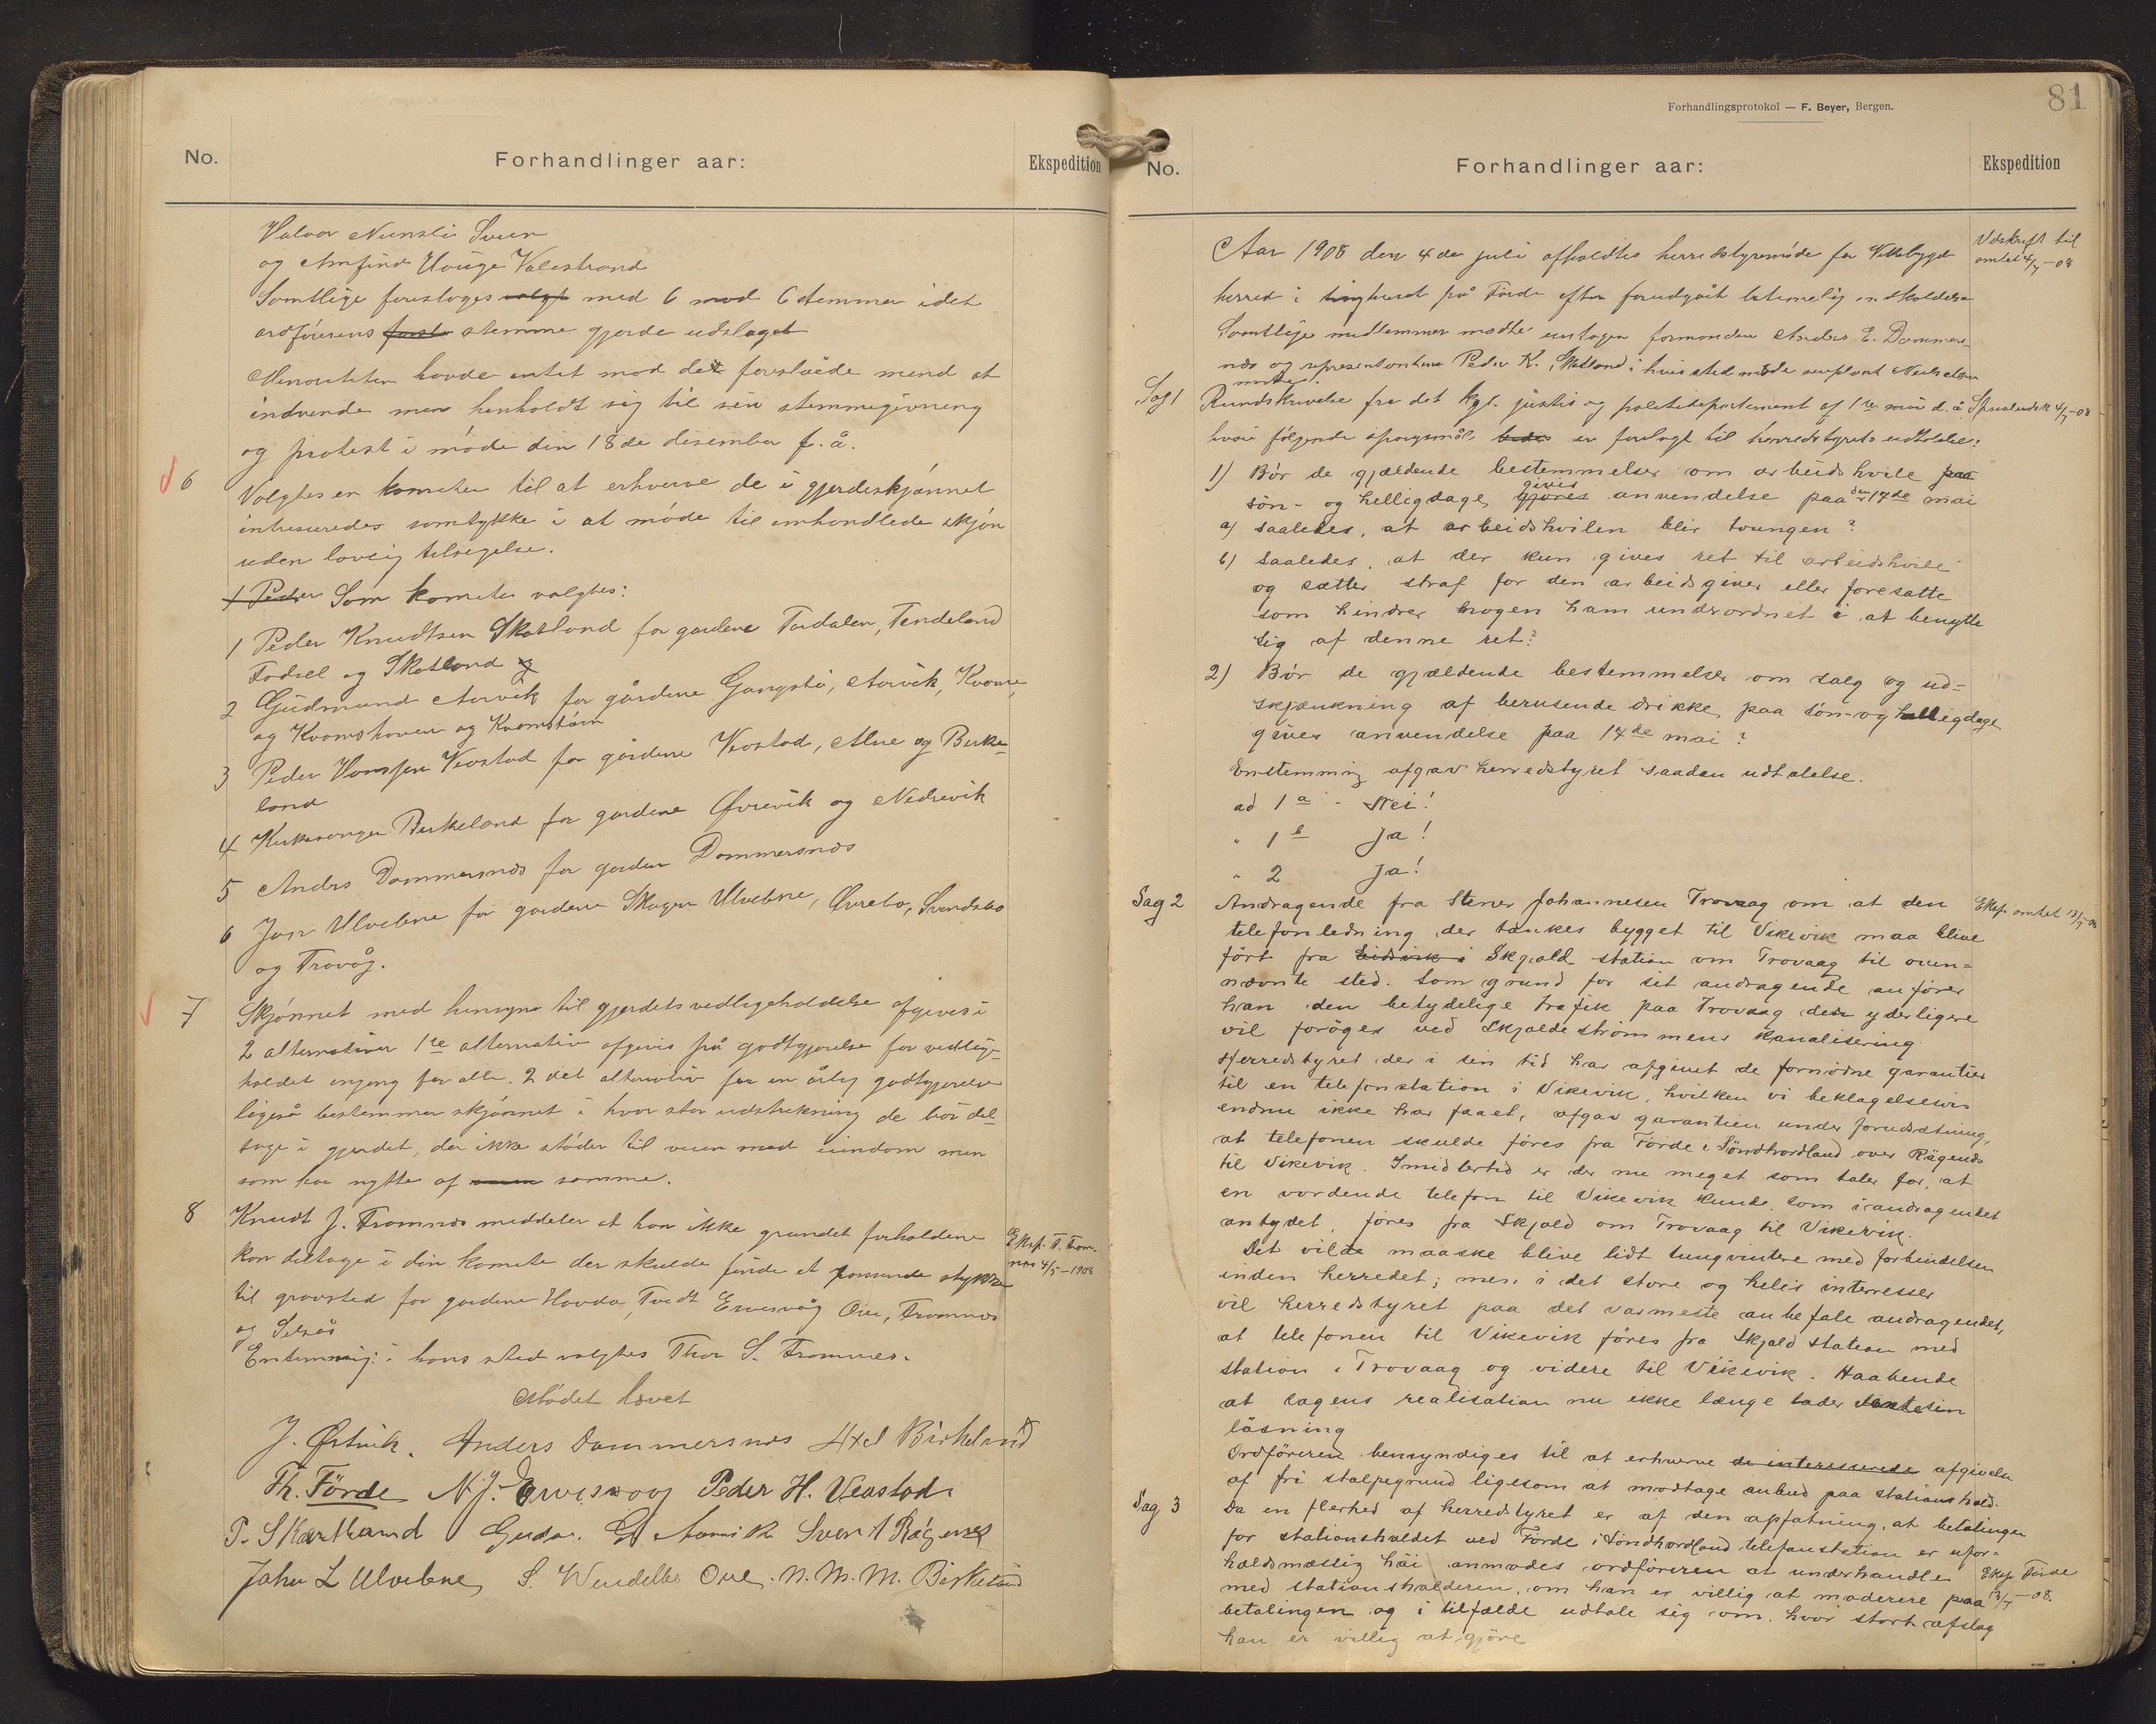 No.
Forhandlinger aar:
Ekspedition
Halvor Nernsli Sveen
og Arnfind Houge Valestrand
Samtlige foresloges valgt med 6 mod 6 stemmer idet
ordførerens første stemme gjorde udslaget
Minoriteten havde intet mod det foreslåede mend at
indvende men henholdt sig til sin stemmegivning
og protest i møde den 18de desember f. å.
6
Valgtes en komite til at erhverve de i gjerdeskjønnet
intreseredes samtykke i at møde til omhandlede skjøn
uden lovlig tilsigelse.
1 Peder Som komite valgtes:
1 Peder Knudtsen Skartland for gardene Tordalen, Tendeland
Fodsel og Skatland
2 Gudmund Aarvik for gårdene Gangstø, Aarvik, Kvame,
og Kvamshoven og Kvamstøen
3 Peder Hansen Veastad for gårdene Veastad, Alne og Birke-
land
4 Kirkesanger Birkeland for gardene Øvrevik og Nedrevik
5 Anders Dommersnes for garden Dommersnes
6 Jon Ulvebne for gardene Skogen Ulvebne, Øvrebø, Svendsbø
og Trovåg.
7
Skjønnet med hensyn til gjerdets vedligeholdelse afgives i
2 alternativer 1ste alternativ afgives på godtgjørelse for vedlige-
holdet engang for alle. 2 det alternativ for en årlig godtgjørelse
ligeså bestemmer skjønnet i hvor stor udstrekning de bør del-
tage i gjerdet, der ikke støder til veien med eiendom men
som har nytte af veien samme.
8
Knudt J. Framnes meddeler at han ikke grundet forholdene
kan deltage i den komite der skulde finde et passende stykke
til gravsted for gardene Hovda, Tvedt Ervesvåg Øve, Framnes
og Selsås
Enstemmig: i hans sted valgtes Thor S. Framnes.
Eksp. T. Fram-
nes 4/5 – 1908
Mødet hævet
J. Østvik. Anders Dommersnes Axel Birkeland
Th. Førde N. J. Ervesvaag Peder H. Veastad
P. Skartland Gudm. G. Aarvik Sven A Røgenes
John L Ulvebne S. Wendelbo Øve. N. M. M. Birkeland
81
Forhandlingsprotokol — F. Beyer, Bergen.
No.
Forhandlinger aar:
Ekspedition
Aar 1908 den 4de juli afholdtes herredstyremøde for Vikebygd
herred i tinghuset på Førde efter forudgået betimelig indkaldelse
Samtlige medlemmer mødte untagen formanden Anders E. Dommers-
nes og representanten Peder K. Skatland i hvis sted møde suplant
mødte.
Udskrift til
amtet 4/7 – 08
Sag 1
Rundskrivelse fra det kgl. justis og politidepartement af 1ste mai d. å.
hvori følgende spørgsmål bedes er forelagt til herredstyrets udtalelse:
1) Bör de gjældende bestemmelser om arbeidshvile paa
sön- og helligdage gjöres givis anvendelse paa den 17de mai
a) saaledes, at arbeidshvilen blir tvungen?
b) saaledes, at der kun gives ret til arbeidshvile
og sætter straf for den arbeidsgiver eller foresatte
som hindrer nogen ham underordnet i at benytte
sig af denne ret?
2) Bör de gjældende bestemmelser om salg og ud-
skjænkning af berusende drikke paa sön- og helligdage
gives anvendelse paa 17de mai?
Enstemmig afgav herredstyret saadan udtalelse.
ad 1a - Nei!
" 1b Ja!
" 2 Ja!
Sag 2
Andragende fra Stener Johannesen Trovaag om at den
telefonledning der tænkes bygget til Vikevik maa blive
fört fra Eidsvik i Skjold station om Trovaag til oven-
nævnte sted. Som grund for sit andragende anförer
han den betydelige trafik paa Trovaag der yderligere
vil foröges ved Skjoldeströmmens kanalisering
Herredstyret der i sin tid har afgivet de fornödne garantier
til en telefonstation i Vikevik, hvilken vi beklageligvis
endnu ikke har faaet, afgav garantien under forudsætning,
at telefonen skulde föres fra Förde i Söndhordland over Rägenes
til Vikevik. Imidlertid er der nu meget som taler for, at
en vordende telefon til Vikevik kunde, som i andragendet
antydet, föres fra Skjold om Trovaag til Vikevik.
Det vilde maaske blive lidt tungvintere med forbindelsen
inden herredet; men i det store og heles interresser
vil herredstyret paa det varmeste anbefale andragendet,
at telefonen til Vikevik föres fra Skjold station med
station i Trovaag og videre til Vikevik. Haabende
at sagens realisation nu ikke længe lader vente sin
läsning
Ordföreren bemyndiges til at erhverve de interesserede afgivelse
af fri stolpegrund ligesom at modtage anbud paa stationshold.
Eksp amtet 13/7-08
Sag 3
Da en flerhed af herredstyret er af den opfatning, at betalingen
for stationsholdet ved Förde i Söndhordland telefonstation er ufor-
holdsmæssig höi anmodes ordföreren at underhandle
med stationsholderen, om han er villig at moderere paa
betalingen og i tilfælde udtale sig om, hvor stort afslag
han er villig at gjöre
Eksp Förde
13/7 – 08.